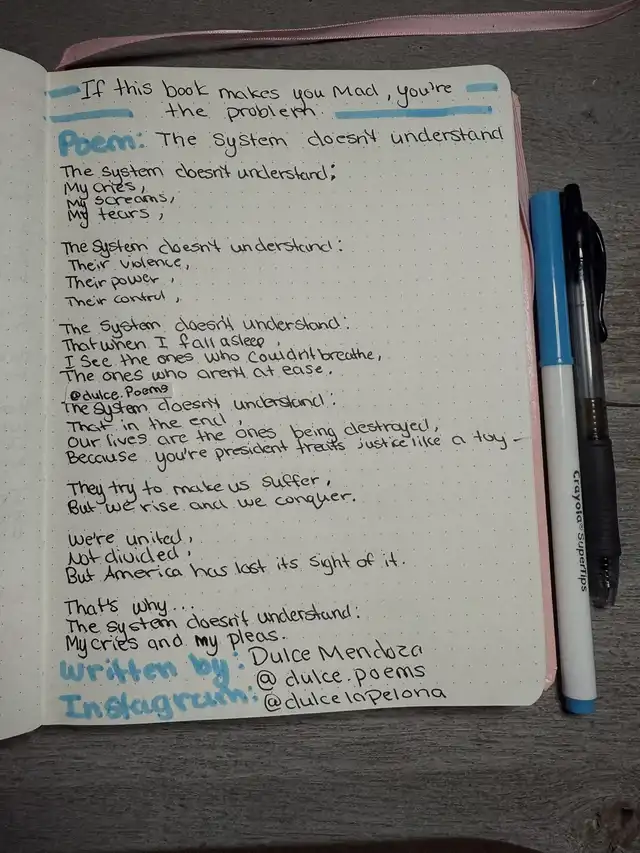 If this book makes you Mad, you're
the problem.
Poem: The System doesn't understand
The system doesn't understand:
My cries,
My screams,
My tears,
The System doesn't understand:
Their violence,
Their power,
Their control,
The System doesn't understand:
That when I fall asleep,
I See the ones who couldn't breathe,
The ones who aren't at ease.
@dulce.Poems
The System doesn't understand:
That in the end,
Our lives are the ones being destroyed,
Because you're president treats justice like a toy-
They try to make us suffer,
But we rise and we conquer.
We're united,
Not divided,
But America has lost its sight of it.
That's why...
The System doesn't understand:
My cries and my pleas.
Written by: Dulce Mendoza
@dulce.poems
Instagram: @dulcelapelona
Crayola SuperTips